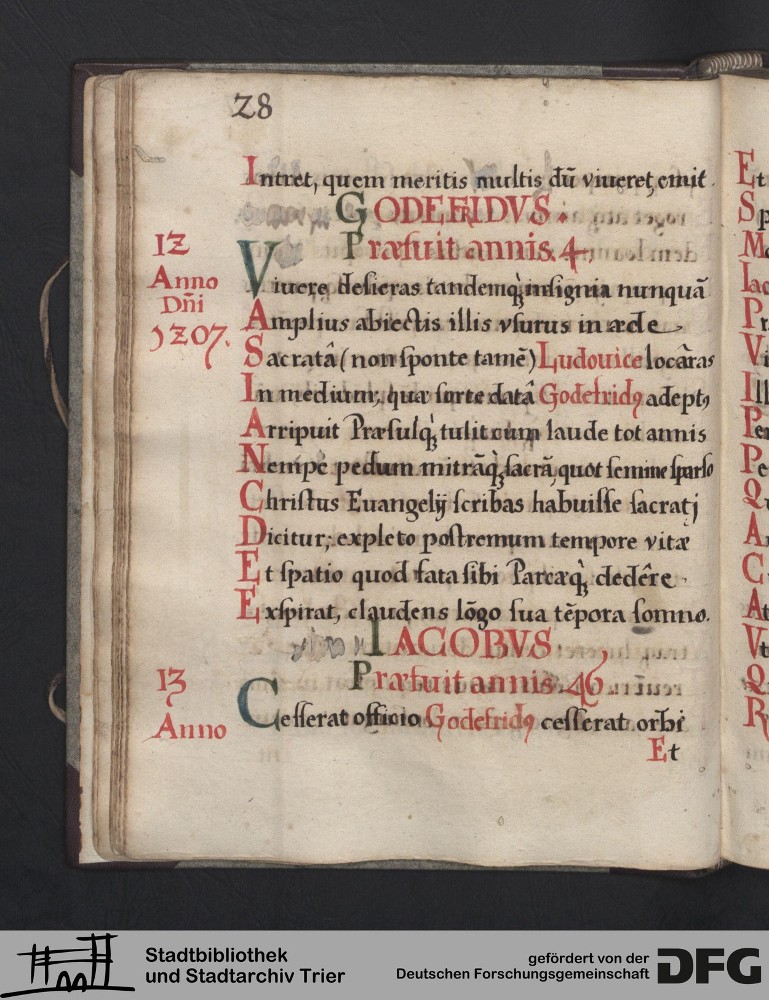 28
Intret, quem meritis multis dū viueret, emit.
GODEFRIDVS.
Præfuit annis. 4
12
Anno
Dñi
1207.
Viuere desieras tandemq̃ insignia nunquā
Amplius abiectis illis vsurus in æde
Sacratâ (non sponte tamē) Ludouice locâras
In medium, quæ sorte datâ Godefridꝯ adeptꝯ
Arripuit Præsulq̃ tulit cum laude tot annis
Nempè pedum mitrāq̃ sacrā, quot semine sparso
Christus Euangelij scribas habuisse sacratj
Dicitur; expleto postremum tempore vitæ
Et spatio quod fata sibi Parcæq̃ dedêre.
Exspirat, claudens lōgo sua tēpora somno.
IACOBVS
Præfuit annis. 46
13
Anno
Cesserat officio Godefridꝯ cesserat orbi
Et
Et
Sp
Ma
Iac
Pr
Vi
Ill
Per
Pe
Qu
A
C
At
Vt
Q
R
Stadtbibliothek
und Stadtarchiv Trier
gefördert von der
Deutschen Forschungsgemeinschaft
DFG